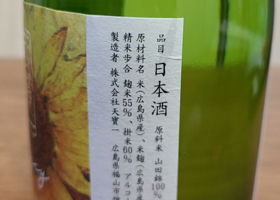 品目 日本酒 原料米 山田錦100%
原材料名 米(広島県産)、米麹(広島県産
精米歩合 麹米55%、掛米60% アルコ
製造者 株式会社天寶一 広島県福山市